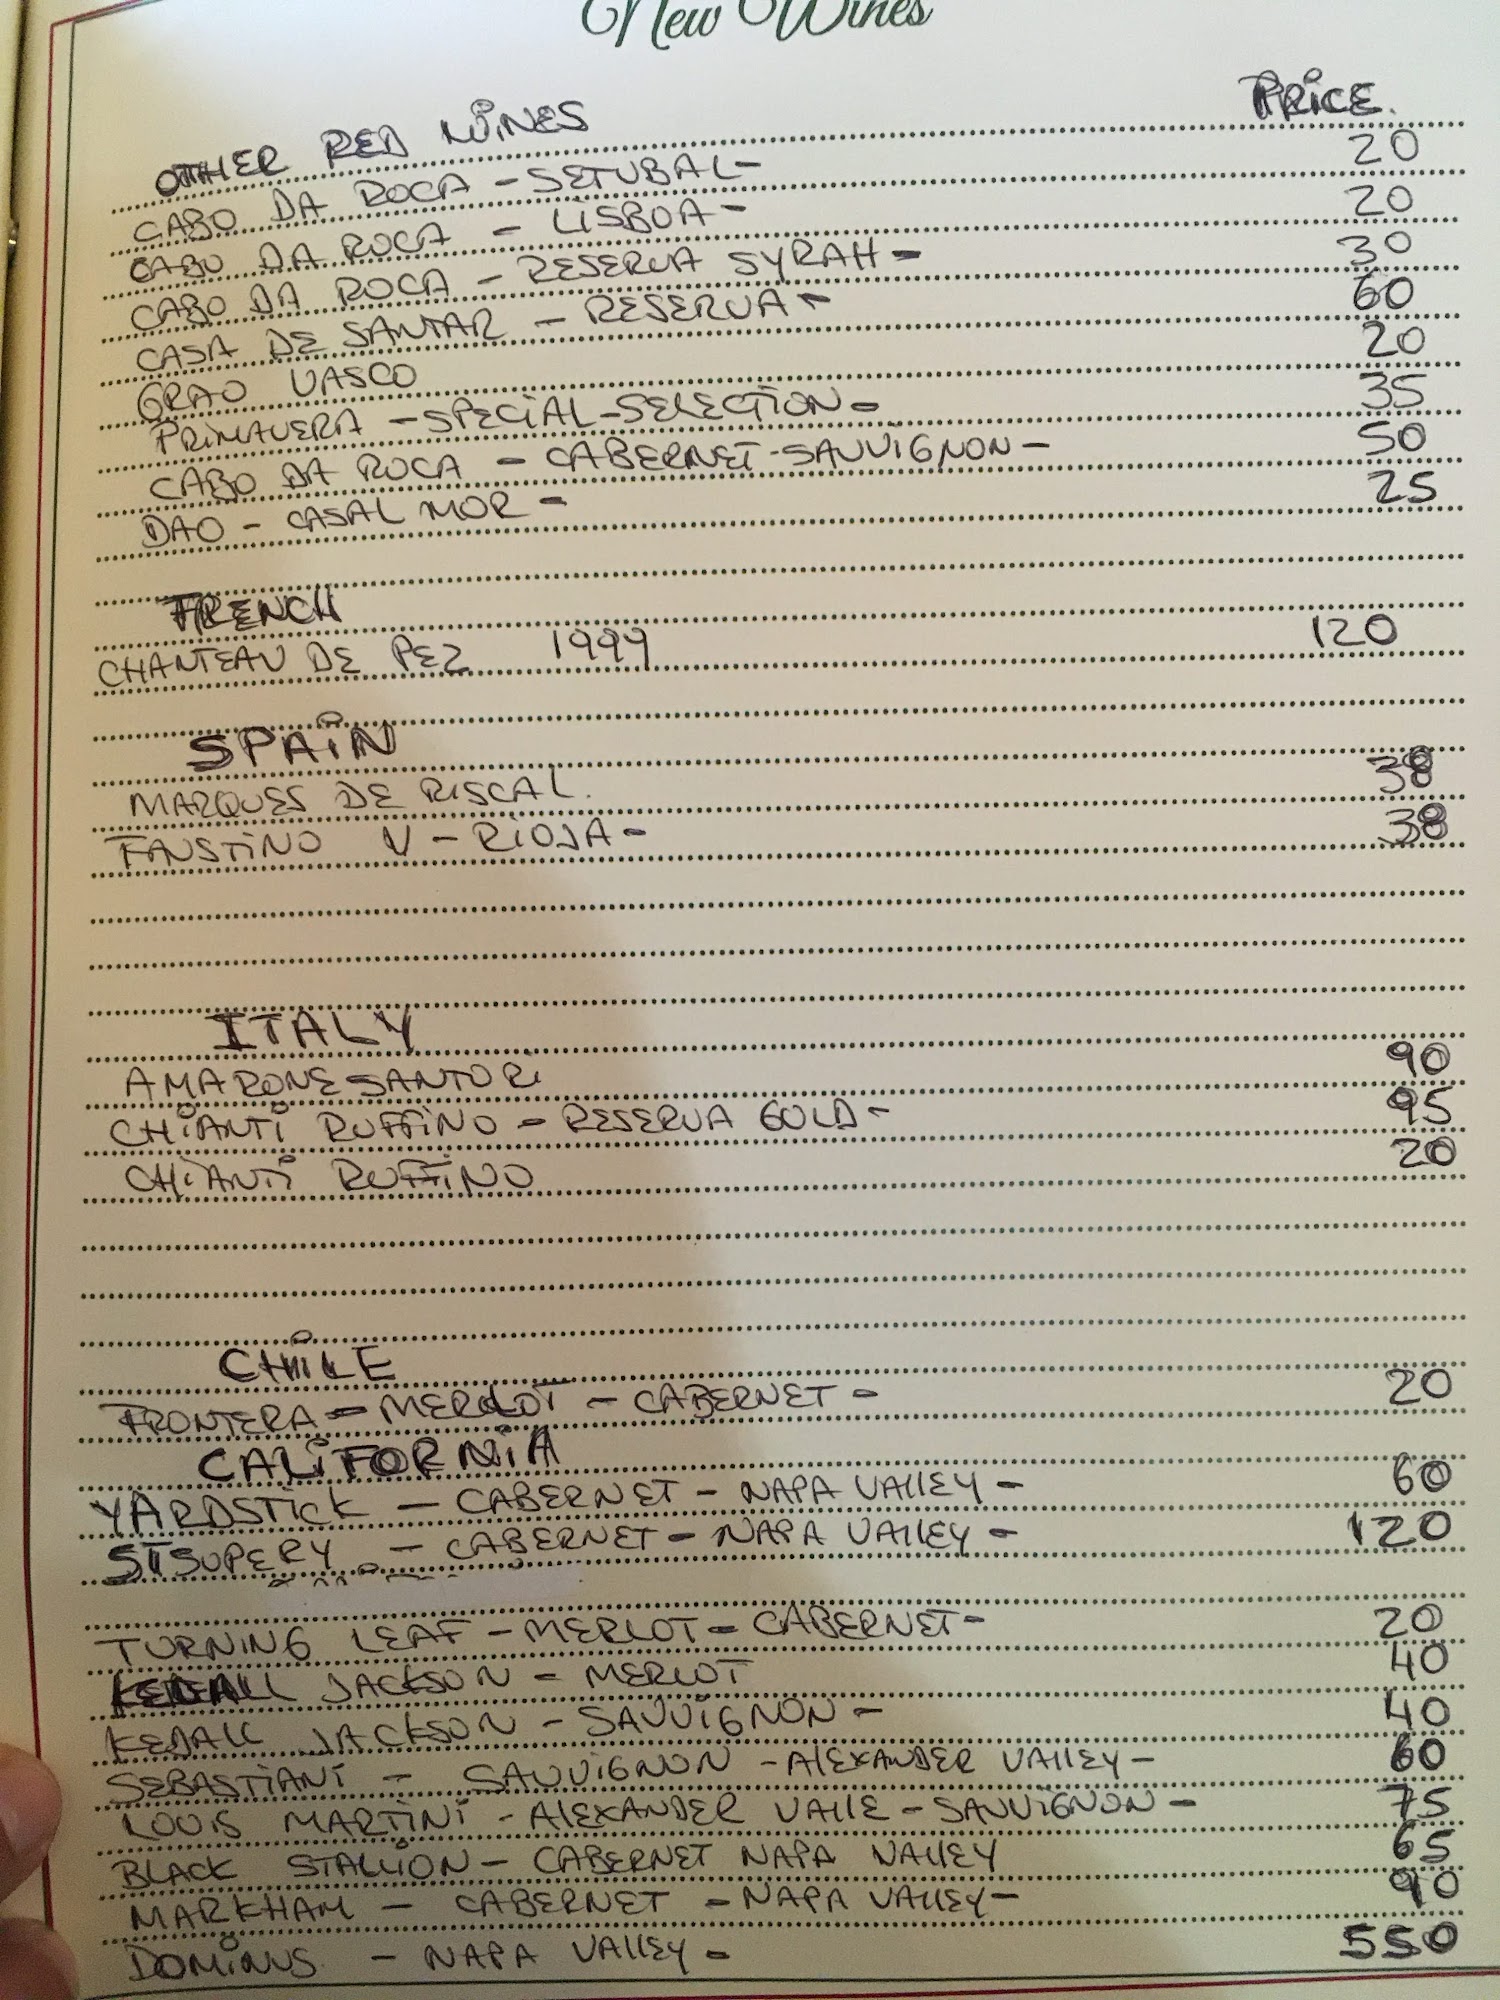 New Wines
OTHER RED WINES PRICE.
CABO DA ROCA - SETUBAL - 20
CABO DA ROCA - LISBOA - 20
CABO DA ROCA - RESERVA SYRAH - 30
CASA DE SANTAR - RESERVA - 60
GRAO VASCO 20
PRIMAVERA - SPECIAL - SELECTION - 35
CABO DA ROCA - CABERNET - SAUVIGNON - 50
DAO - CASAL MOR - 25
FRENCH
CHANTEAU DE PEZ 1999 120
SPAIN
MARQUES DE RISCAL. 38
FAUSTINO V - RIOJA - 38
ITALY
AMARONE SANTORI 90
CHIANTI RUFFINO - RESERVA GOLD - 95
CHIANTI RUFFINO 20
CHILE
FRONTERA - MERLOT - CABERNET - 20
CALIFORNIA
YARDSTICK - CABERNET - NAPA VALLEY - 60
ST SUPERY - CABERNET - NAPA VALLEY - 120
TURNING LEAF - MERLOT - CABERNET - 20
KEDALL JACKSON - MERLOT 40
KEDALL JACKSON - SAUVIGNON - 40
SEBASTIANI - SAUVIGNON - ALEXANDER VALLEY - 60
LOUIS MARTINI - ALEXANDER VALLE - SAUVIGNON - 75
BLACK STALLION - CABERNET NAPA VALLEY 65
MARKHAM - CABERNET - NAPA VALLEY - 90
DOMINUS - NAPA VALLEY - 550